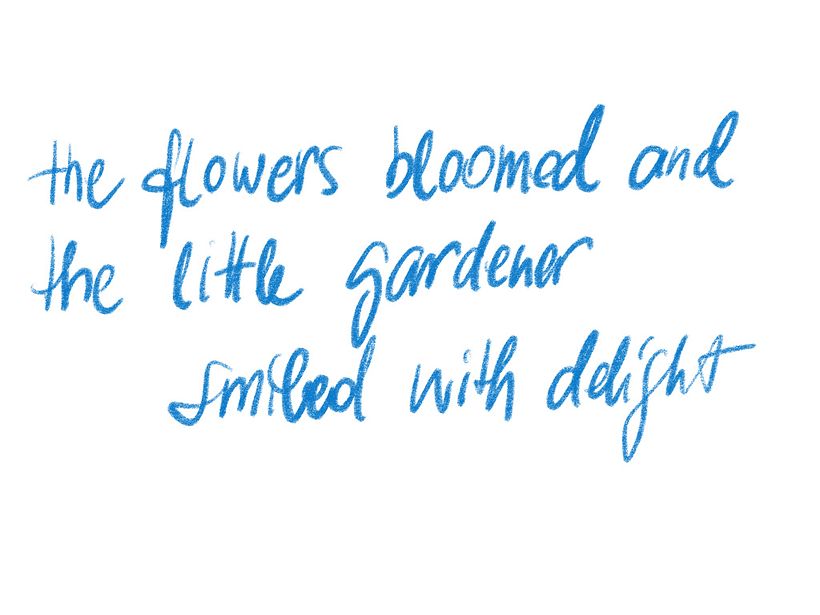 the flowers bloomed and
the little gardener
smiled with delight